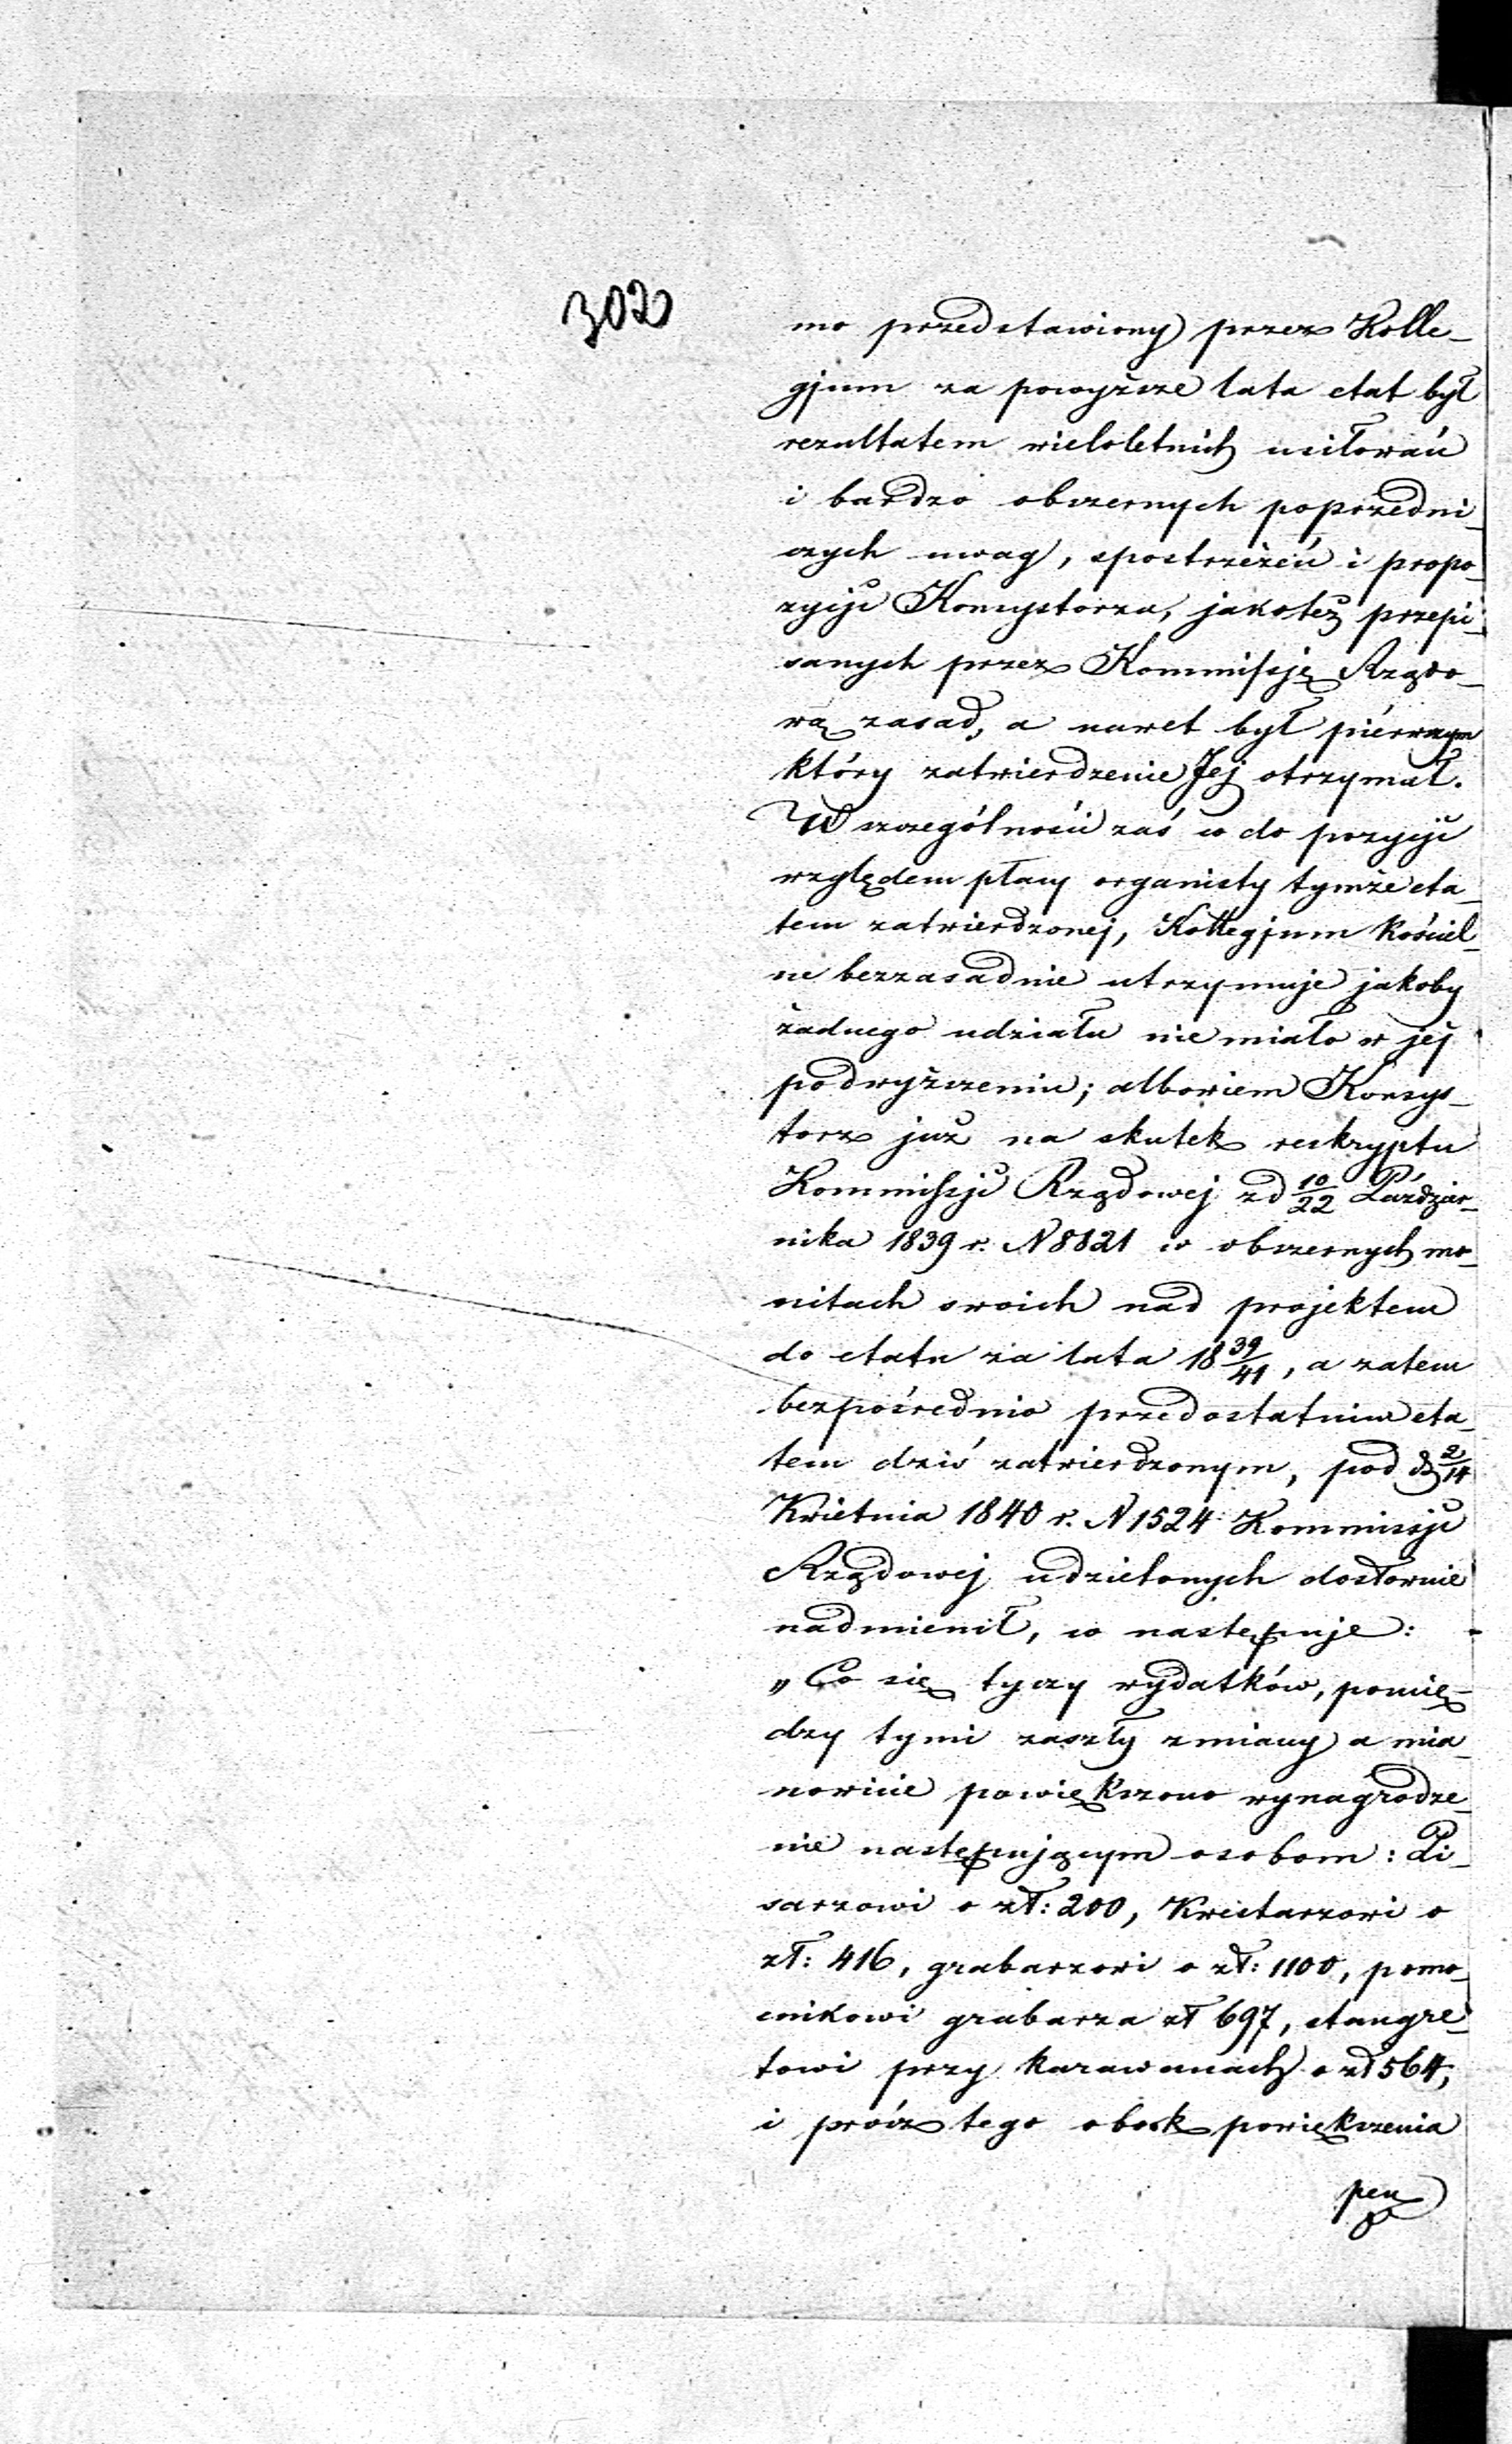 302
mo przedstawiony przez Kolle-
gjum za powyższe lata etat był
rezultatem wieloletnich usiłowań
i bardzo obszernych poprzedni-
czych uwag, spostrzeżeń i propo-
zycji Konsystorza, jakoteż przepi-
sanych przez Kommissję Rządo-
wą zasad, a nawet był piérwszym
który zatwierdzenie Jej otrzymał.
W szczególności zaś co do pozycji
względem płacy organisty tymże eta-
tem zatwierdzonej, Kollegjum Kościel-
ne bezzasadnie utrzymuje jakoby
żadnego udziału nie miało w jej
podwyższeniu; albowiem Konsys-
torz już na skutek reskryptu
Kommissji Rządowej z d 10/22 Paździer-
nika 1839 r. N 8821 w obszernych mo-
nitach swoich nad projektem
do etatu za lata 18 39/41, a zatem
bezpośrednio przedostatnim eta-
tem dziś zatwierdzonym, pod d 2/14
Kwietnia 1840 r. N 1524 Kommissji
Rządowej udzielonych dosłownie
nadmienił, co następuje:
„Co się tyczy wydatków, pomię-
dzy tymi zaszły zmiany a mia-
nowicie powiększono wynagrodze-
nie następującym osobom: Pi-
sarzowi o zł: 200, Kwestarzowi o
zł: 416, grabarzowi o zł: 1100, pomo-
cnikowi grabarza zł 697, stangre-
towi przy karawanach o zł 564,
i prócz tego obok powiększenia
pen